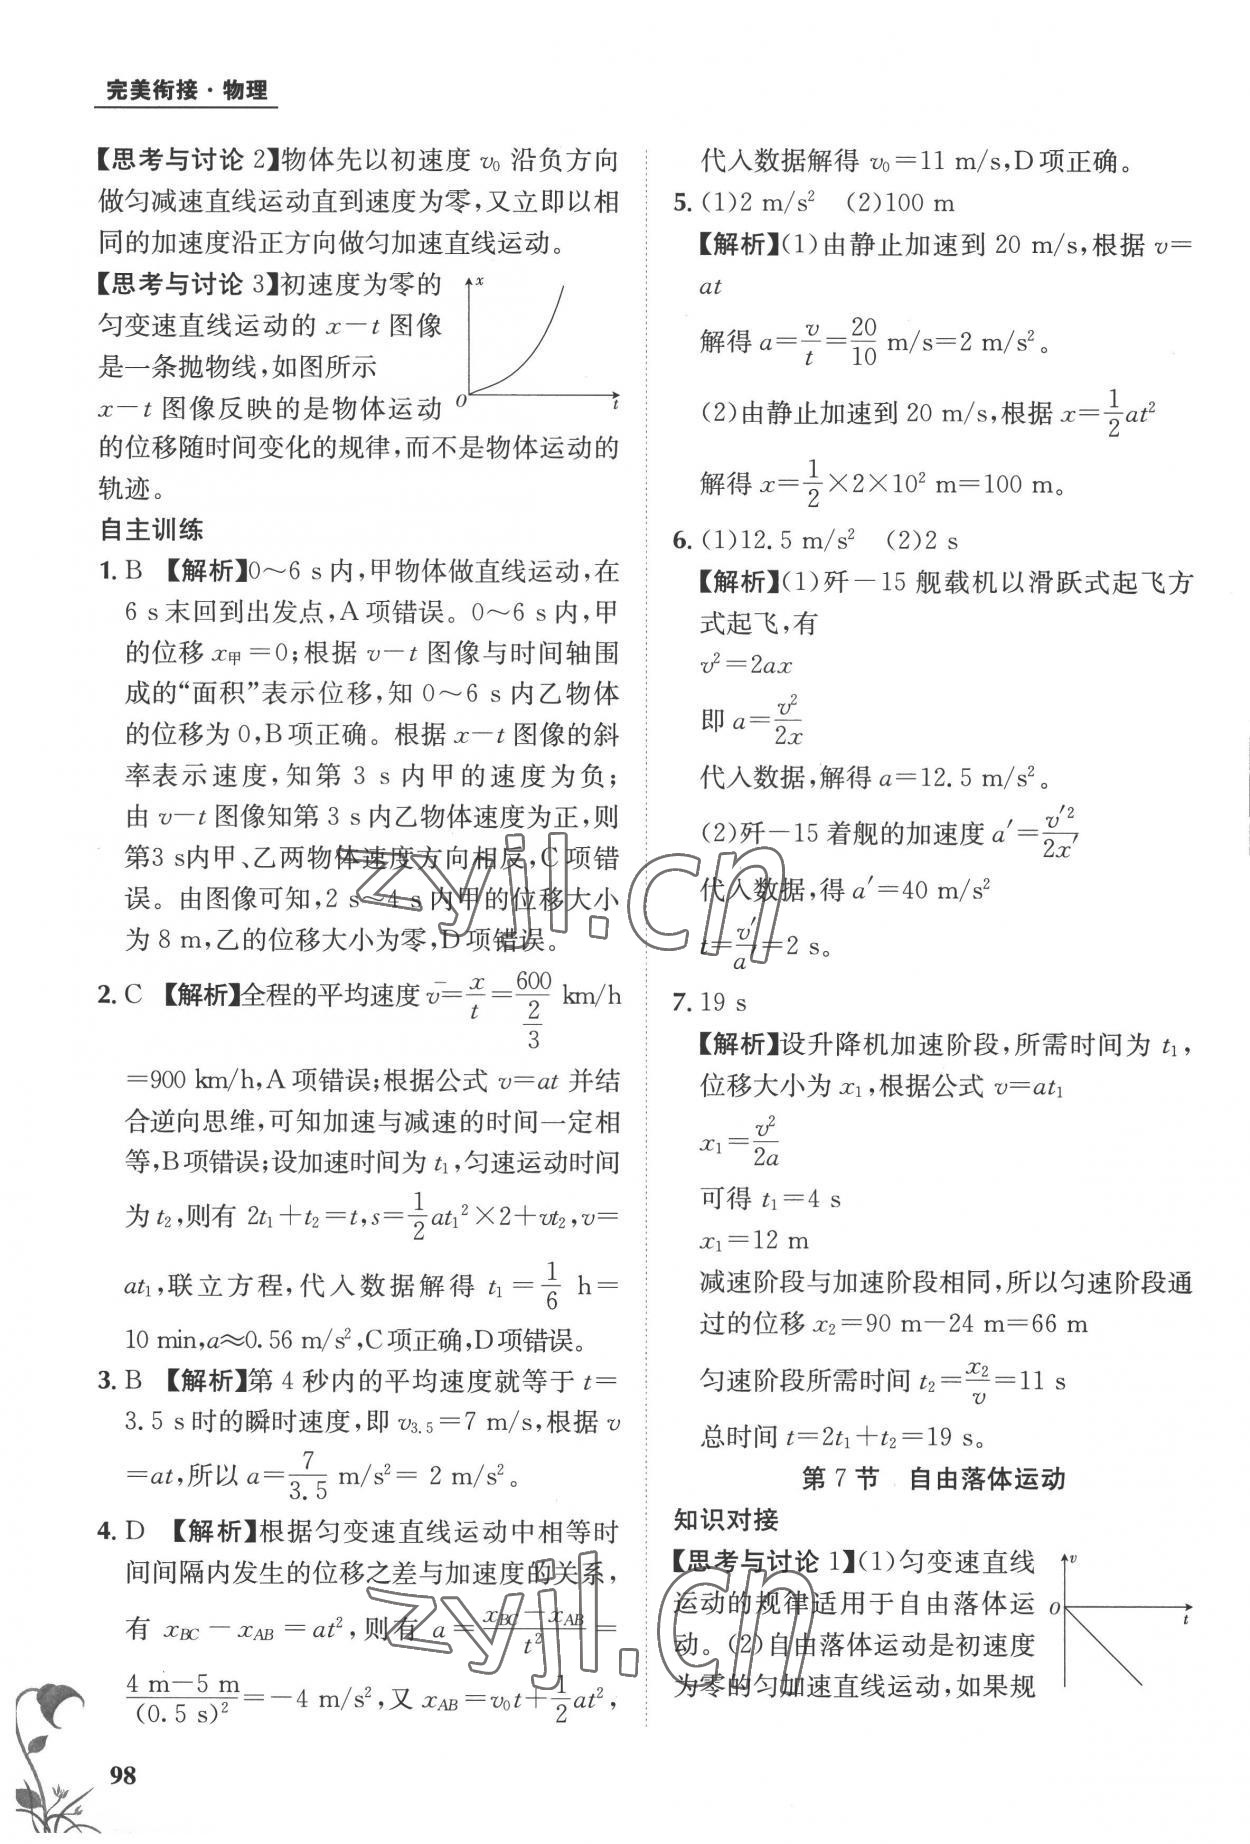 完美衔接·物理
【思考与讨论 2】物体先以初速度 v₀ 沿负方向
做匀减速直线运动直到速度为零,又立即以相
同的加速度沿正方向做匀加速直线运动。
【思考与讨论 3】初速度为零的
匀变速直线运动的 x－t 图像
是一条抛物线,如图所示
x－t 图像反映的是物体运动
的位移随时间变化的规律,而不是物体运动的
轨迹。
x
O
t
自主训练
1. B 【解析】0～6 s 内,甲物体做直线运动,在
6 s 末回到出发点,A 项错误。0～6 s 内,甲
的位移 x甲＝0;根据 v－t 图像与时间轴围
成的“面积”表示位移,知 0～6 s 内乙物体
的位移为 0,B 项正确。根据 x－t 图像的斜
率表示速度,知第 3 s 内甲的速度为负;
由 v－t 图像知第 3 s 内乙物体速度为正,则
第3 s内甲、乙两物体速度方向相反,C 项错
误。由图像可知,2 s～4 s 内甲的位移大小
为 8 m,乙的位移大小为零,D 项错误。
2. C 【解析】全程的平均速度 v̄＝x/t＝600/(2/3) km/h
＝900 km/h,A 项错误;根据公式 v＝at 并结
合逆向思维,可知加速与减速的时间一定相
等,B项错误;设加速时间为 t₁,匀速运动时间
为 t₂,则有 2t₁＋t₂＝t,s＝1/2 at₁²×2＋vt₂,v＝
at₁,联立方程,代入数据解得 t₁＝1/6 h＝
10 min,a≈0.56 m/s²,C项正确,D项错误。
3. B 【解析】第 4 秒内的平均速度就等于 t＝
3.5 s 时的瞬时速度,即 v₃.₅＝7 m/s,根据 v
＝at,所以 a＝7/3.5 m/s²＝ 2 m/s²。
4. D 【解析】根据匀变速直线运动中相等时
间间隔内发生的位移之差与加速度的关系,
有 x_BC－x_AB＝at²,则有 a＝(x_BC－x_AB)/t²＝
(4 m－5 m)/(0.5 s)²＝－4 m/s²,又 x_AB＝v₀t＋1/2 at²,
98
代入数据解得 v₀＝11 m/s,D 项正确。
5. (1)2 m/s² (2)100 m
【解析】(1)由静止加速到 20 m/s,根据 v＝
at
解得 a＝v/t＝20/10 m/s＝2 m/s²。
(2)由静止加速到 20 m/s,根据 x＝1/2 at²
解得 x＝1/2×2×10² m＝100 m。
6. (1)12.5 m/s² (2)2 s
【解析】(1)歼－15 舰载机以滑跃式起飞方
式起飞,有
v²＝2ax
即 a＝v²/2x
代入数据,解得 a＝12.5 m/s²。
(2)歼－15 着舰的加速度 a′＝v′²/2x′
代入数据,得 a′＝40 m/s²
t＝v′/a′＝2 s。
7. 19 s
【解析】设升降机加速阶段,所需时间为 t₁,
位移大小为 x₁,根据公式 v＝at₁
x₁＝v²/2a
可得 t₁＝4 s
x₁＝12 m
减速阶段与加速阶段相同,所以匀速阶段通
过的位移 x₂＝90 m－24 m＝66 m
匀速阶段所需时间 t₂＝x₂/v＝11 s
总时间 t＝2t₁＋t₂＝19 s。
第 7 节 自由落体运动
知识对接
【思考与讨论 1】(1)匀变速直线
运动的规律适用于自由落体运
动。(2)自由落体运动是初速度
为零的匀加速直线运动,如果规
v
O
t
zyjl.cn
zyjl.cn